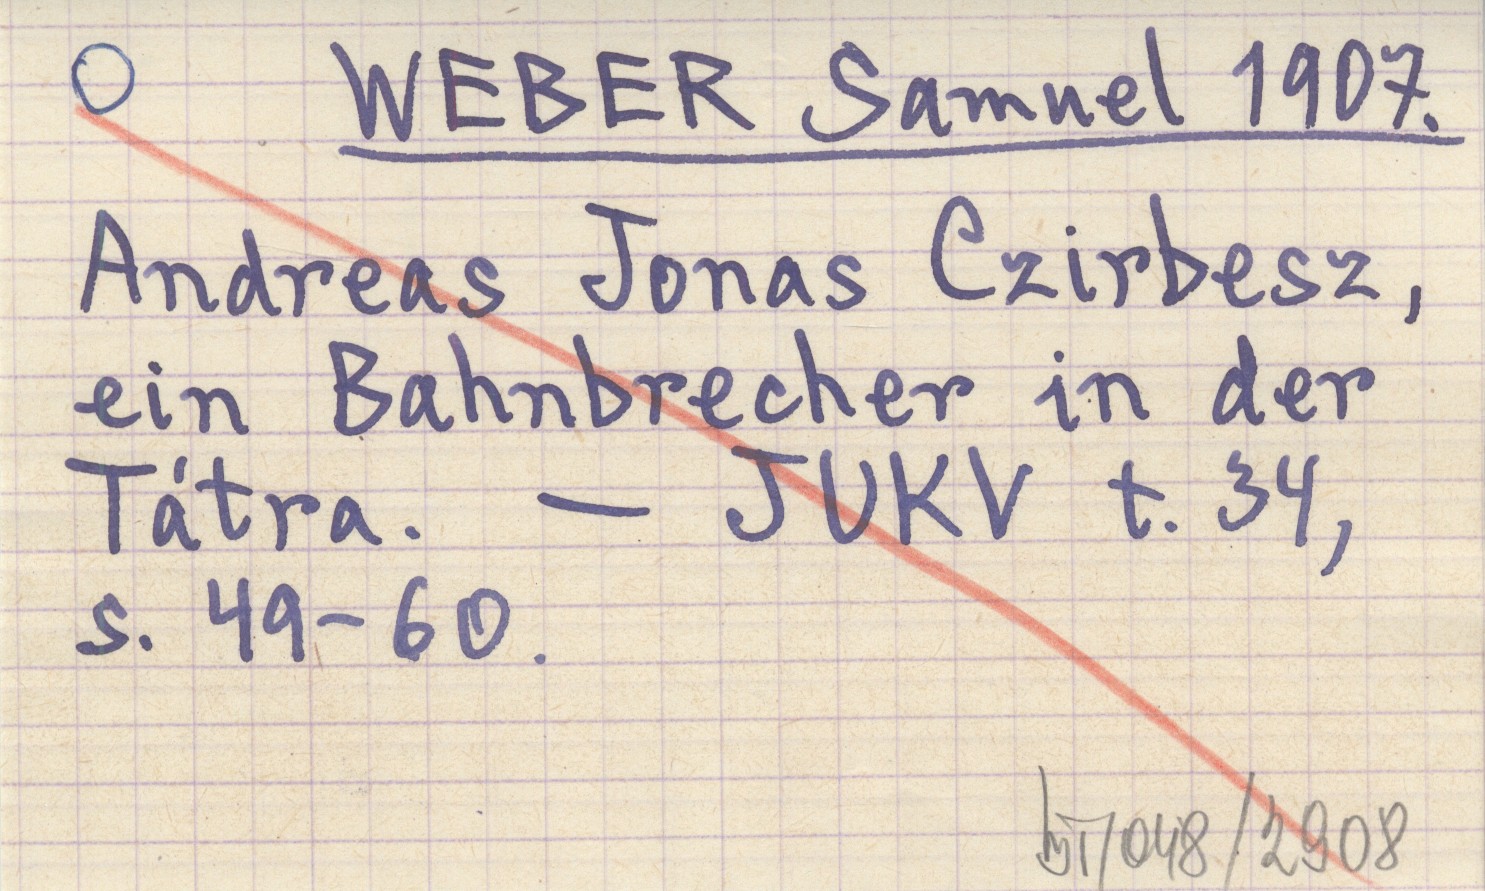 WEBER Samuel 1907.
Andreas Jonas Czirbesz,
ein Bahnbrecher in der
Tátra. — JUKV t. 34,
s. 49-60.
048/2908